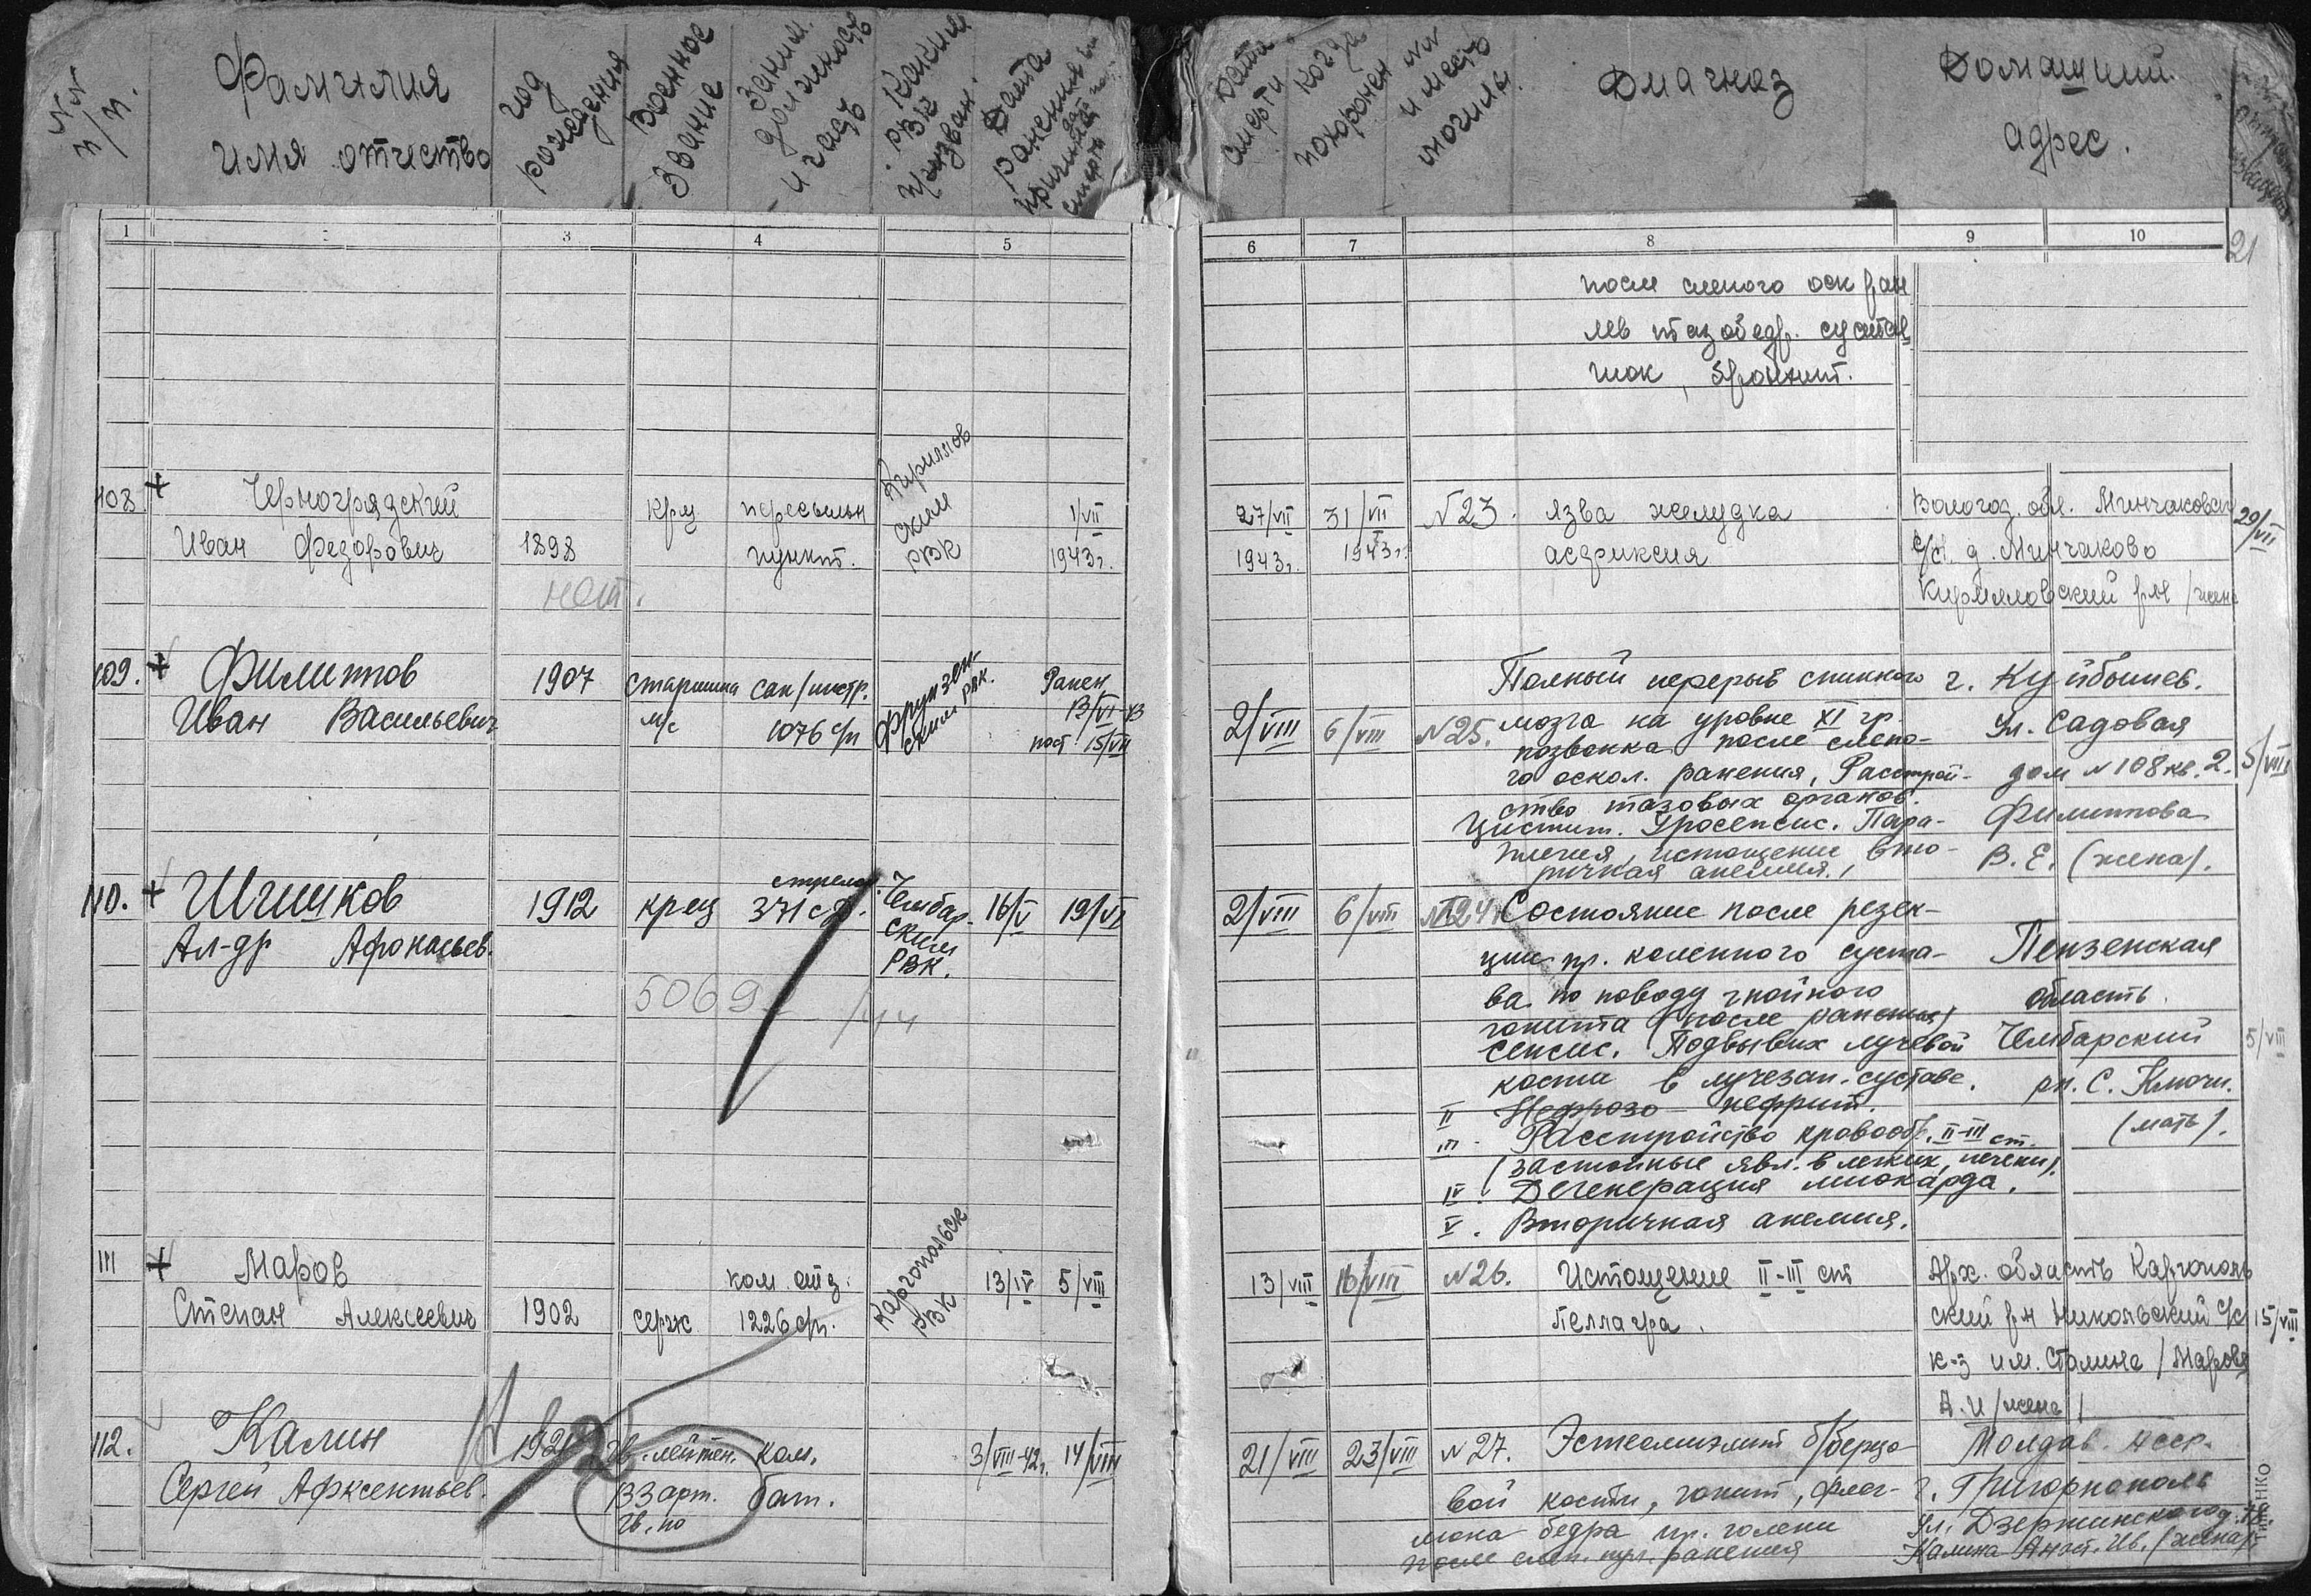 NN п/п.
Фамилия имя отчество
год рождения
Военное звание
Заним. должность и часть
Каким РВК призван.
Дата ранения
Дата смерти
Когда похоронен
NN и место могилы.
Диагноз
Домашний адрес.
1 3 4 5 6 7 8 9 10 21
после слепого оск ран
лев тазобедр. сустав
108 Черногрядский крц пересыльн Кирилловским РВК 1/VII 27/VII 31/VII №23. язва желудка Вологод. обл. Минчаковск 29/VII
Иван Федорович 1898 пункт. 1943г. 1943г. 1943г. асфиксия с/с. д. Минчаково
нет. Кирилловский р-н /жена
109. Филиппов 1907 старшина сан/инстр. Фрунзенским РВК. Ранен Полный перерыв спинного г. Куйбышев.
Иван Васильевич м/с 1076 с/п 2/VIII 6/VIII №25. мозга на уровне XI гр. Ул. Садовая
пост 15/VII позвонка после слепо-
го оскол. ранения, Расстрой- дом №108 кв. 2. 5/VIII
ство тазовых органов.
Цистит. Уросепсис. Пара- Филиппова
плегия, истощение вто- В. Е. (жена).
ричная анемия.
110. Шишков 1912 крец стрелк. Чембарским РВК. 16/V 19/VI 2/VIII 6/VIII №24 Состояние после резек-
Ал-др Афонасьев. 371 с
ции пр. коленного суста- Пензенская
5069
ва по поводу гнойного область.
гонита (после ранения)
сепсис. Подвывих лучевой Чембарский 5/VIII
кости в лучезап. суставе. рн. С. Ключи.
II Нефрозо-нефрит.
III - Расстройство кровооб. II-III ст. (мать).
(застойные явл. в легких, печени).
IV. Дегенерация миокарда.
V. Вторичная анемия.
111 Маров ком. отд. Каргопольск РВК 13/IV 5/VIII 13/VIII 16/VIII №26. Истощение II-III ст Арх. область Каргополь
Степан Алексеевич 1902 серж 1226 сп. Пеллагра. ский р-н Никольский с/с 15/VIII
к-з им. Сталина /Марова
А. И /жена/
112. Калин гв. лейтен. ком. 3/VIII-42г. 14/VIII 21/VIII 23/VIII №27. Остеомиэлит б/берцо- Молдав. АССР.
Сергей Афксентьев. 33 арт. бат. вой кости, гонит, флег- г. Григориополь
гв. по мона бедра пр. голени Ул. Дзержинского
после слеп. пул. ранения Калина (жена)